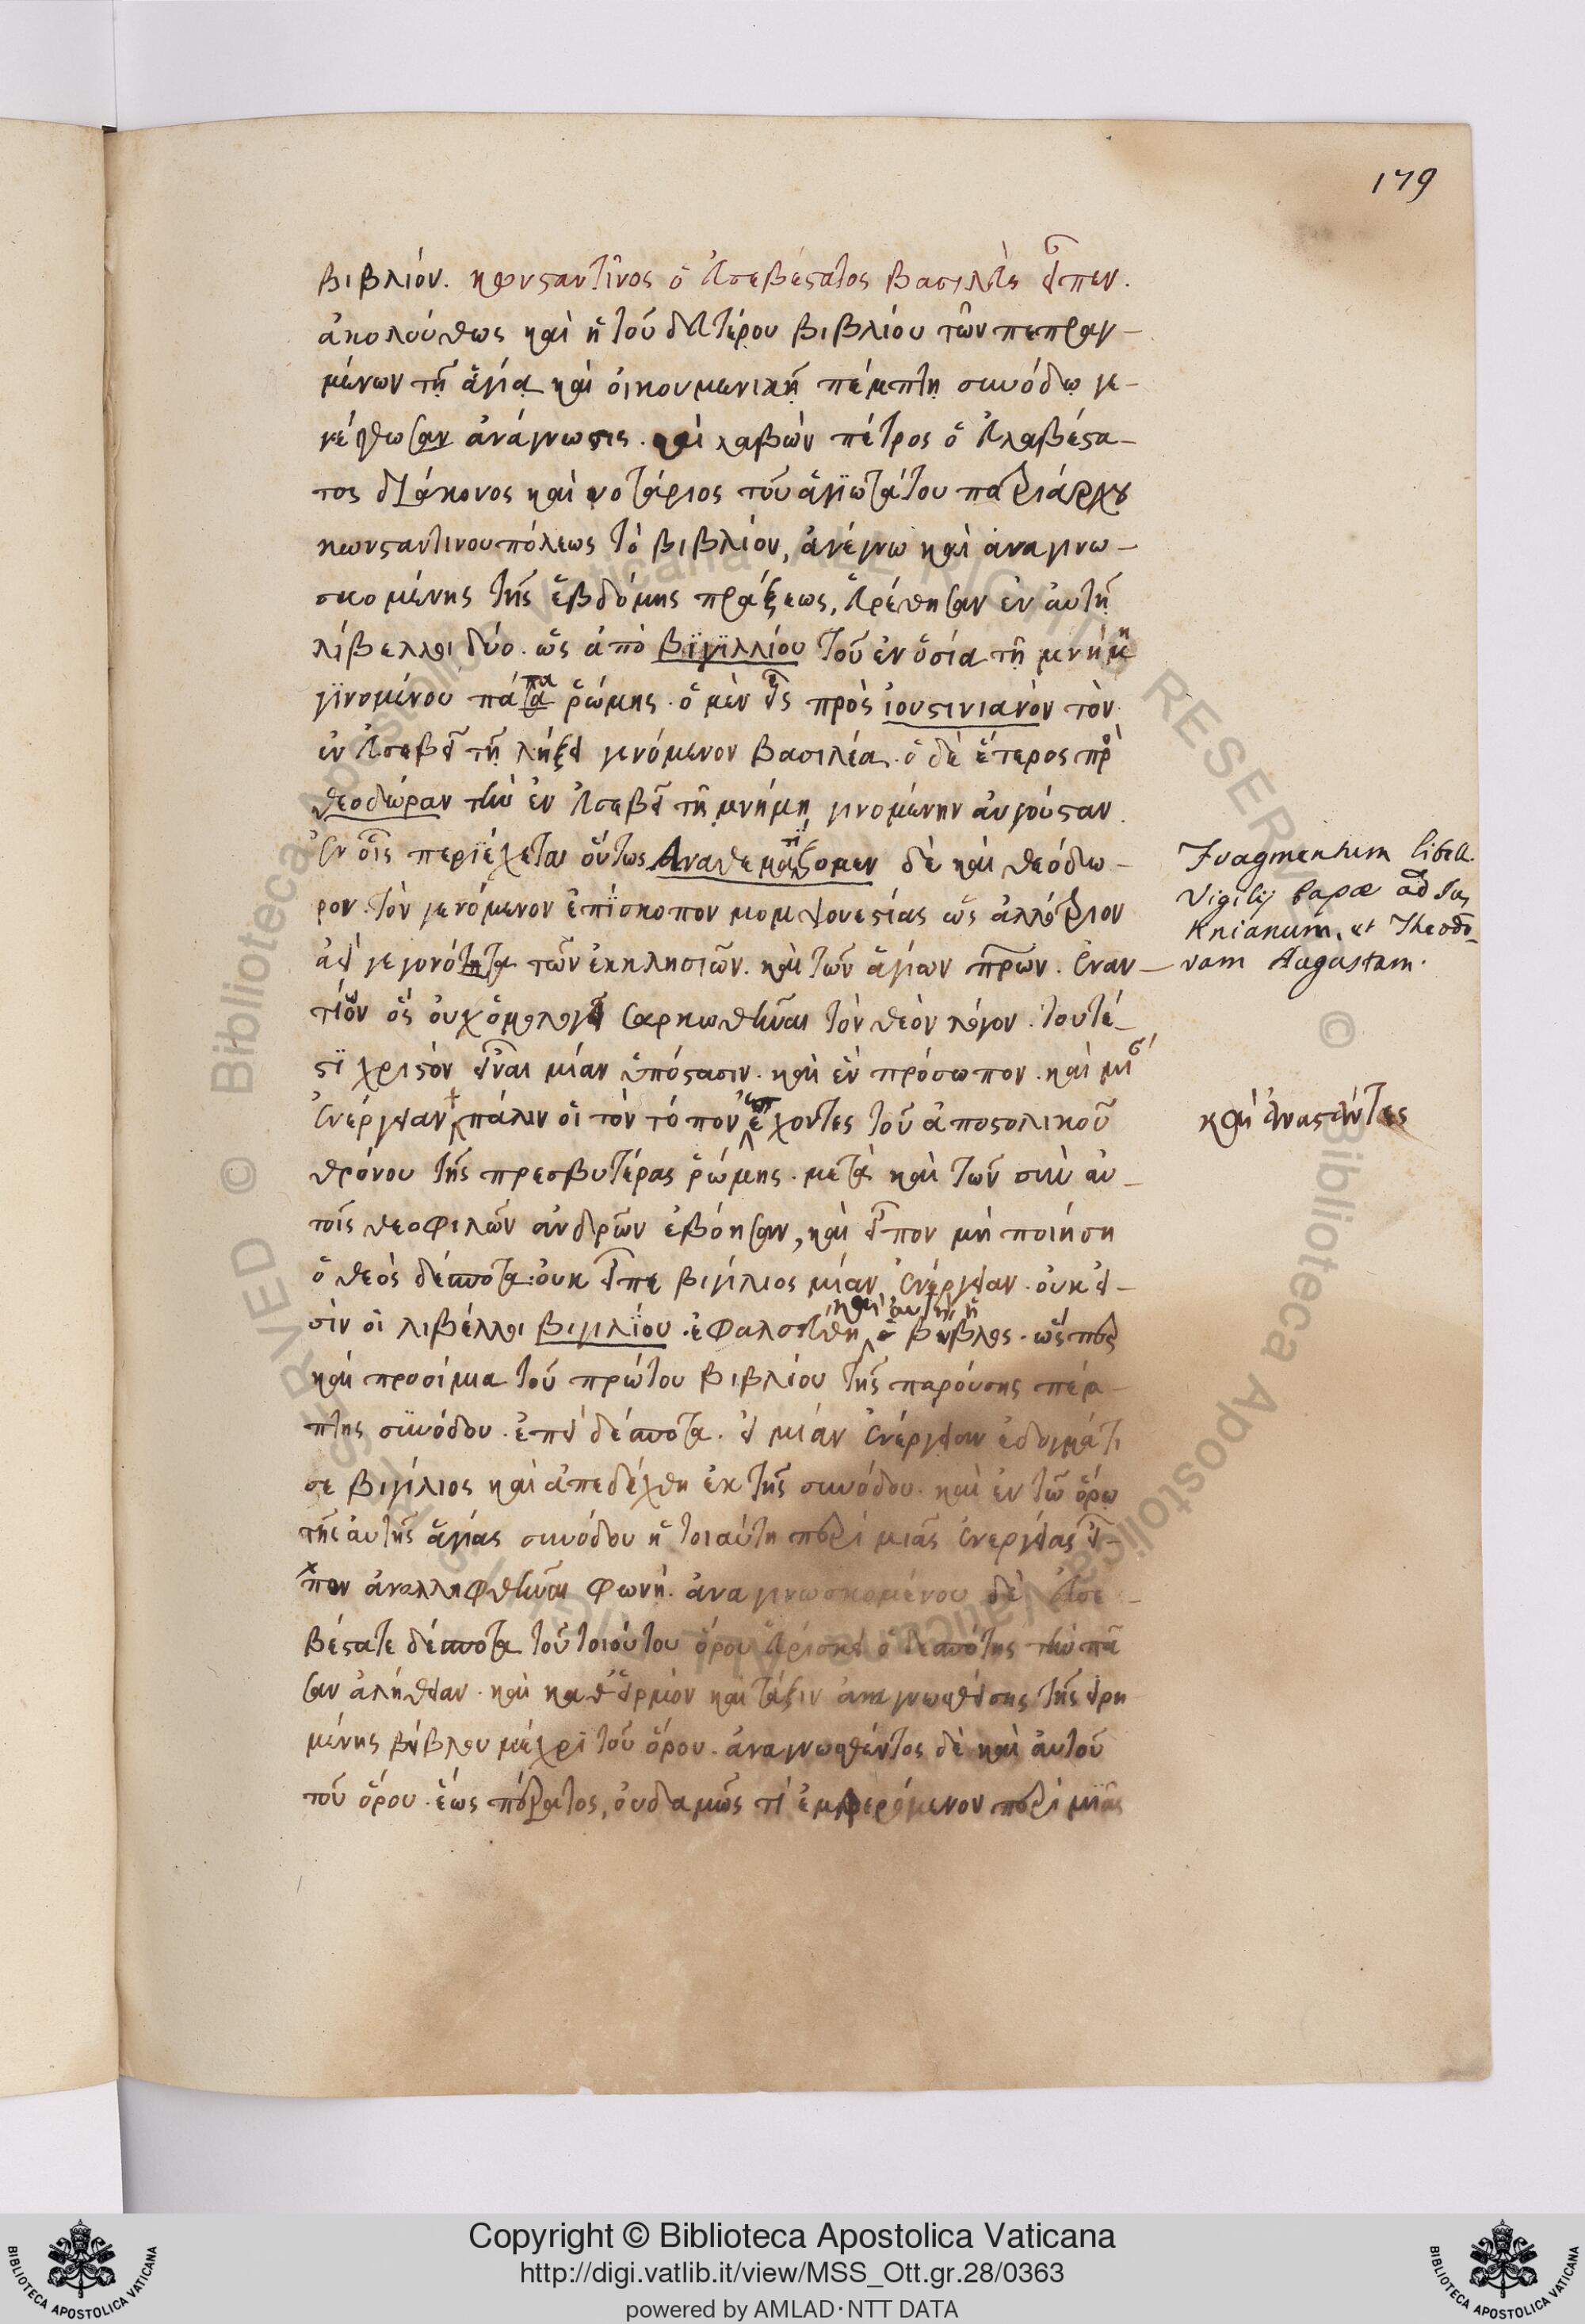 179
βιβλίον. κωνσταντῖνος ὁ εὐσεβέστατος βασιλεὺς εἶπεν.
ἀκολούθως καὶ ἡ τοῦ δευτέρου βιβλίου τῶν πεπραγ-
μένων τῇ ἁγία καὶ οἰκουμενικῇ πέμπτη συνόδω γε-
νέσθω ἀνάγνωσις. καὶ λαβὼν πέτρος ὁ εὐλαβέστα-
τος διάκονος καὶ νοτάριος τοῦ ἁγιωτάτου πατριάρχου
κωνσταντινουπόλεως τὸ βιβλίον, ἀνέγνω καὶ ἀναγινω-
σκομένης τῆς ἑβδόμης πράξεως, εὑρέθησαν ἐν αὐτῇ
λίβελλοι δύο. ὡς ἀπὸ βιγιλλίου τοῦ ἐν ὁσία τῇ μνήμη
γινομένου πάπα ῥώμης. ὁ μὲν εἷς πρὸς ἰουστινιανὸν τὸν
ἐν εὐσεβεῖ τῇ λήξει γενόμενον βασιλέα. ὁ δὲ ἕτερος πρὸς
θεοδώραν τὴν ἐν εὐσεβεῖ τῇ μνήμη γινομένην αὐγούσταν.
ἐν οἷς περιέχεται οὕτως Αναθεματίζομεν δὲ καὶ θεόδω-
ρον τὸν γενόμενον ἐπίσκοπον μομψουεστίας ὡς ἀλλότριον
ἀεὶ γεγονότα τῶν ἐκκλησιῶν. καὶ τῶν ἁγίων πρων. ἐναν-
τίον ὃς οὐχ ὁμολογεῖ σαρκωθῆναι τὸν θεὸν λόγον. τουτέ-
στι χριστὸν εἶναι μίαν ὑπόστασιν. καὶ ἓν πρόσωπον. καὶ μίαν
ἐνέργειαν πάλιν οἱ τὸν τόπον ἐπέχοντες τοῦ ἀποστολικοῦ
θρόνου τῆς πρεσβυτέρας ῥώμης. μετὰ καὶ τῶν σὺν αὐ-
τοῖς θεοφιλῶν ἀνδρῶν ἐβόησαν, καὶ εἶπον μὴ ποιήση
ὁ θεὸς δέσποτα. οὐκ εἶπε βιγίλιος μίαν ἐνέργειαν. οὐκ εἰ-
σὶν οἱ λιβέλλοι βιγιλίου. ἐφαλσεύθη καὶ αὐτὴ ἡ βύβλος. ὥσπερ
καὶ προσίμια τοῦ πρώτου βιβλίου τῆς παρούσης πέμ-
πτης συνόδου. ἐπεὶ δέσποτα. εἰ μίαν ἐνέργειαν ἐδογμάτι
σε βιγίλιος καὶ ἀπεδέχθη ἐκ τῆς συνόδου. καὶ ἐν τῶ ὅρω
τῆς αὐτῆς ἁγίας συνόδου ἡ τοιαύτη περὶ μιᾶς ἐνεργείας εἶ-
χεν ἀναλληφθῆναι φωνή. ἀναγινωσκομένου δὲ εὐσε-
βέστατε δέσποτα τοῦ τοιούτου ὅρου εὑρίσκει ὁ δεσπότης τὴν πᾶ
σαν ἀλήθειαν. καὶ καθ' εἱρμὸν καὶ τάξιν ἀναγνωσθείσης τῆς εἰρη
μένης βύβλου μέχρι τοῦ ὅρου. ἀναγνωσθέντος δὲ καὶ αὐτοῦ
τοῦ ὅρου. ἕως πέρατος, οὐδαμῶς τί ἐμφερόμενον περὶ μιᾶς
Fragmentum libell.
Vigilij Papæ ad Jus
tinianum, et Theodo-
ram Augustam.
καὶ ἀναστάντες
Copyright © Biblioteca Apostolica Vaticana
http://digi.vatlib.it/view/MSS_Ott.gr.28/0363
powered by AMLAD · NTT DATA
BIBLIOTECA APOSTOLICA VATICANA
BIBLIOTECA APOSTOLICA VATICANA